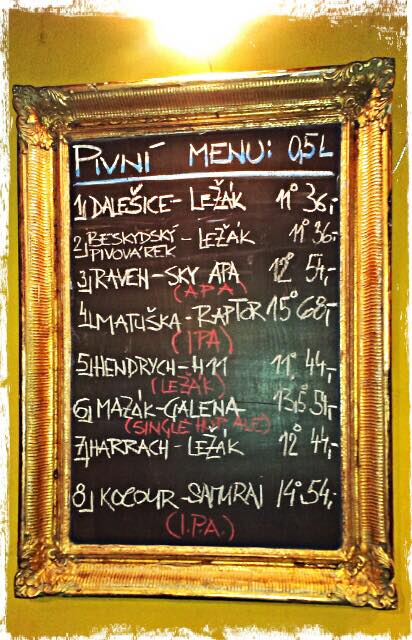 PIVNÍ MENU: 0,5L
1, DALEŠICE - LEŽÁK 11° 36,-
2, BESKYDSKÝ PIVOVÁREK - LEŽÁK 11° 36,-
3, RAVEN - SKY APA 12° 54,-
(APA)
4, MATUŠKA - RAPTOR 15° 68,-
(IPA)
5, HENDRYCH - H11 11° 44,-
(LEŽÁK)
6, MAZÁK - GALENA 13,5 54,-
(SINGLE HOP ALE)
7, HARRACH - LEŽÁK 12° 44,-
8, KOCOUR SAMURAJ 14° 54,-
(I.P.A.)